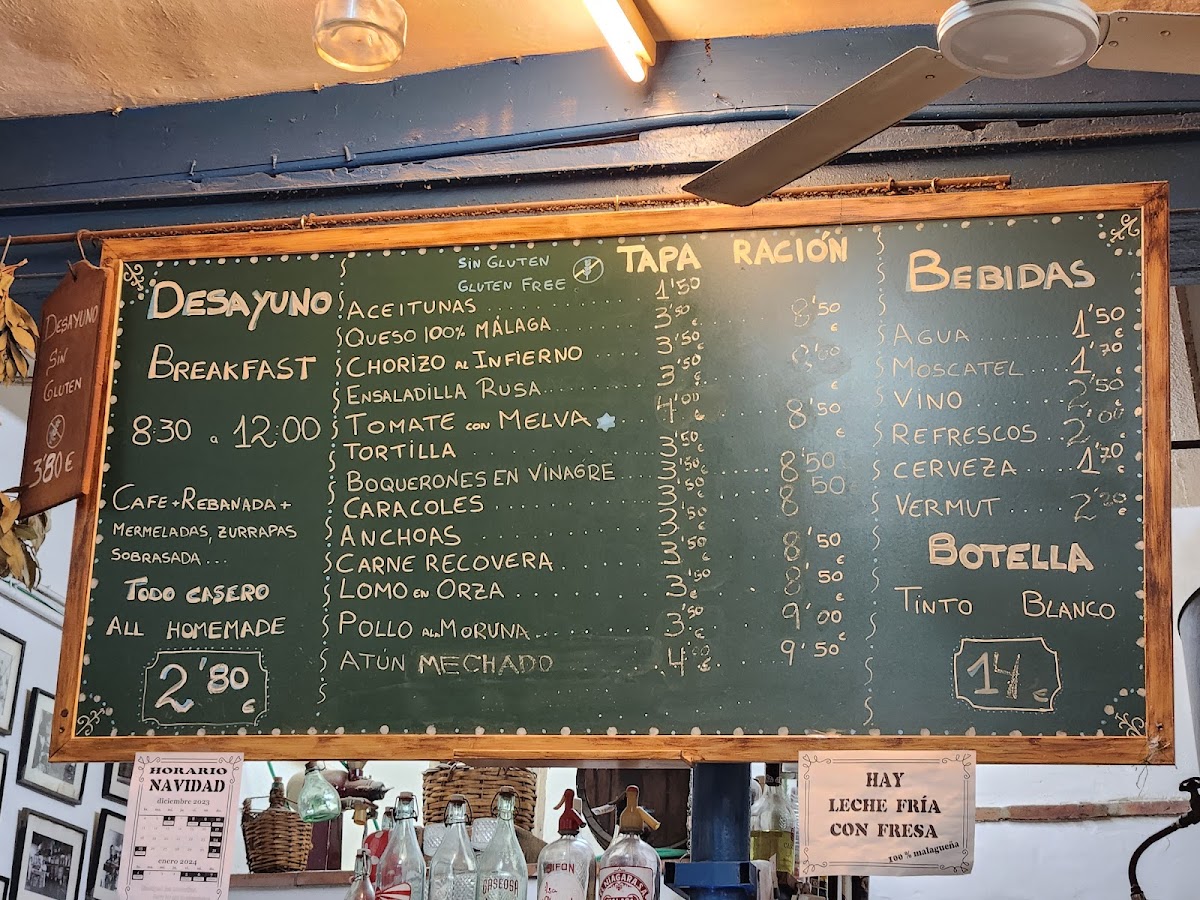 DESAYUNO
SIN
GLUTEN
3'80€
DESAYUNO
BREAKFAST
8:30 a 12:00
CAFE+REBANADA+
MERMELADAS, ZURRAPAS
SOBRASADA...
TODO CASERO
ALL HOMEMADE
2'80 €
SIN GLUTEN
GLUTEN FREE
TAPA RACIÓN
ACEITUNAS 1'50
QUESO 100% MÁLAGA 3'50 € 8'50
CHORIZO AL INFIERNO 3'50 €
ENSALADILLA RUSA 3'50 €
TOMATE CON MELVA 4'00 € 8'50 €
TORTILLA 3'50 €
BOQUERONES EN VINAGRE 3'50 € 8'50
CARACOLES 3'50 € 8'50
ANCHOAS 3'50 €
CARNE RECOVERA 3'50 € 8'50 €
LOMO EN ORZA 3'50 € 8'50 €
POLLO A LA MORUNA 3'50 € 9'00
ATÚN MECHADO 4'00 € 9'50 €
BEBIDAS
AGUA 1'50 €
MOSCATEL 1'70 €
VINO 2'50
REFRESCOS 2'00 €
CERVEZA 1'70 €
VERMUT 2'20 €
BOTELLA
TINTO BLANCO
14 €
HORARIO
NAVIDAD
diciembre 2023
enero 2024
HAY
LECHE FRÍA
CON FRESA
100 % malagueña
GASEOSA
SIFON
NIAGARA S.A.